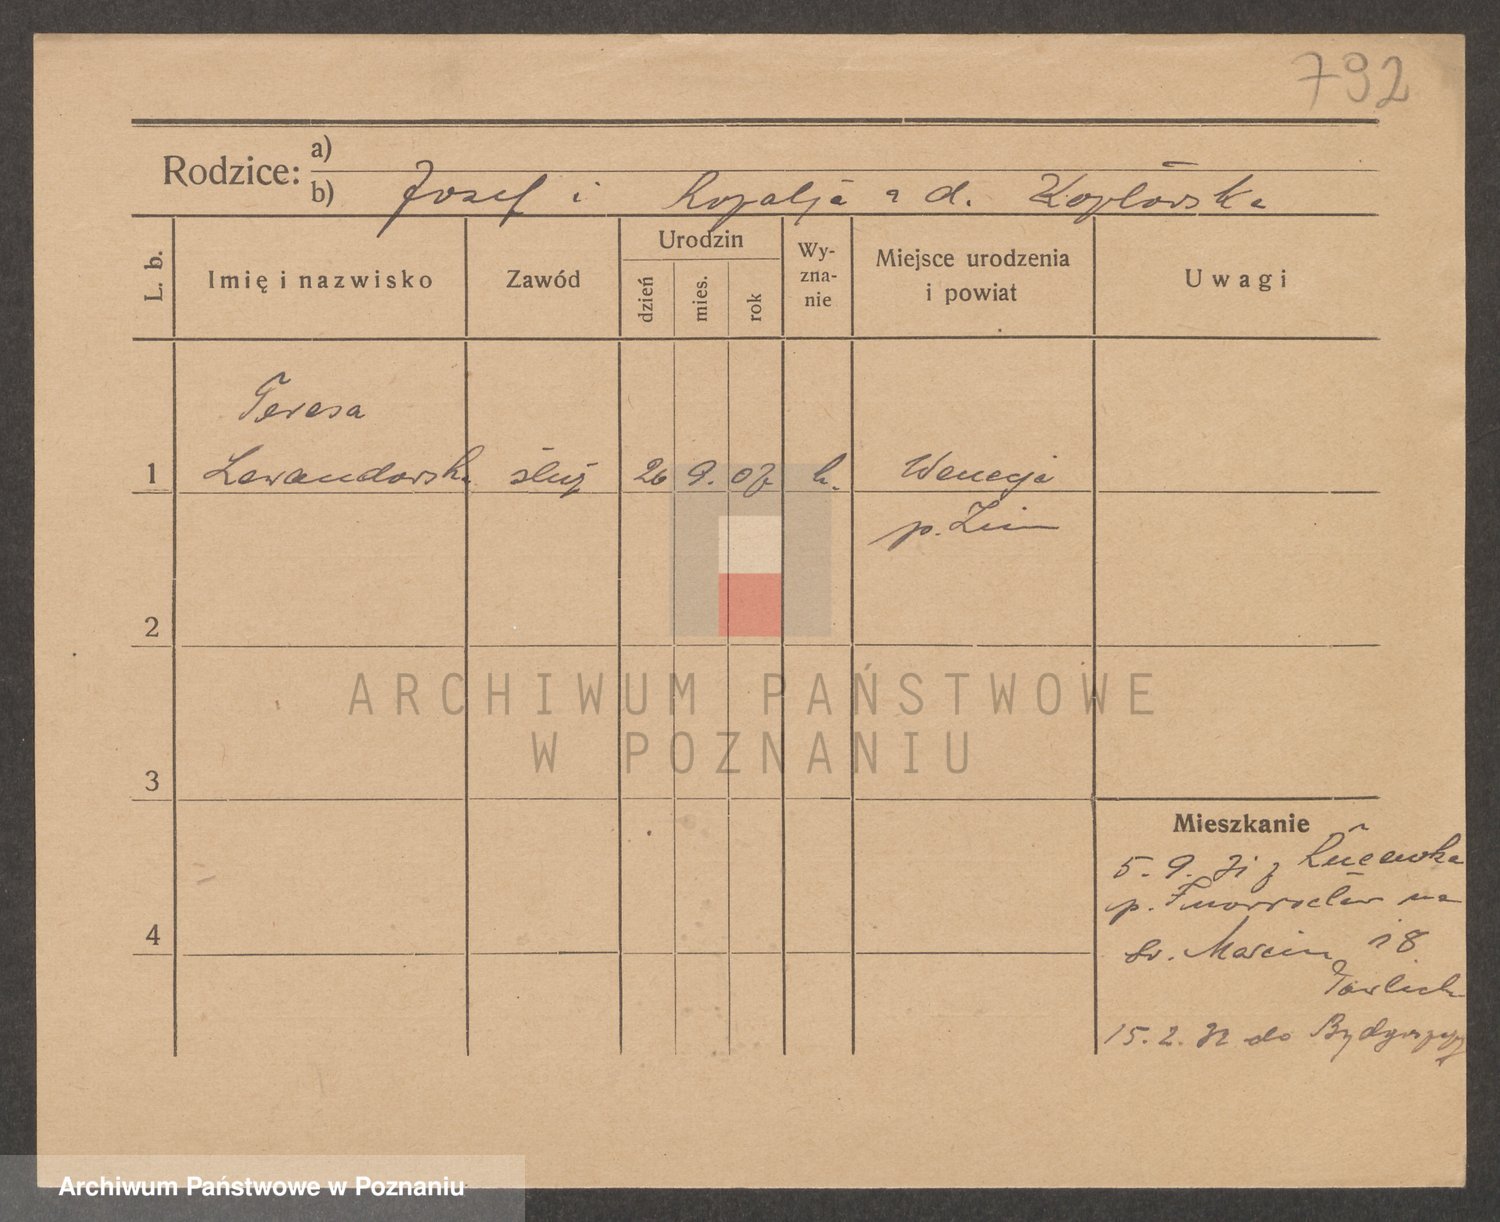 792
Rodzice: a)
b) Josef i Rozalja z d. Kozłowska
L. b.
Imię i nazwisko
Zawód
Urodzin
dzień
mies.
rok
Wy-
zna-
nie
Miejsce urodzenia
i powiat
Uwagi
Teresa
1 Lewandowska służ 26 9. 07 k. Wenecja
p. Żnin
2
3
Mieszkanie
5. 9. 31 z
p. Inowrocław na
4
św. Marcin 18
15. 2. 32 do Bydgoszczy
ARCHIWUM PAŃSTWOWE
W POZNANIU
Archiwum Państwowe w Poznaniu